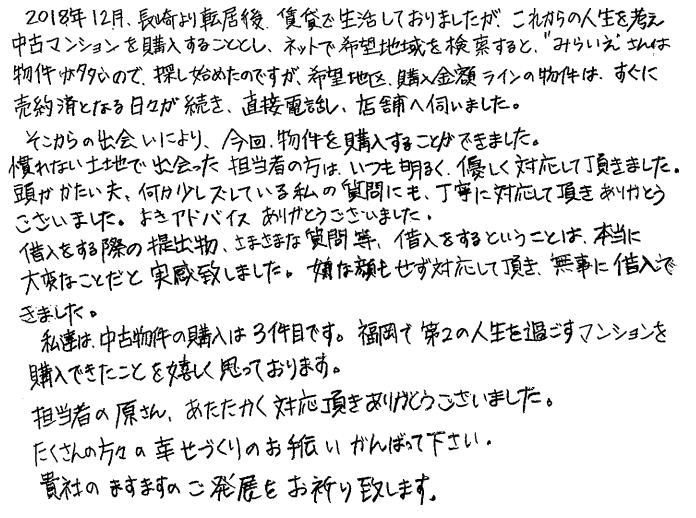 2018年12月、長崎より転居後、賃貸で生活しておりましたが、これからの人生を考え
中古マンションを購入することとし、ネットで希望地域を検索すると、"みらいえ"さんは
物件が多いので、探し始めたのですが、希望地区、購入金額ラインの物件は、すぐに
売約済となる日々が続き、直接電話し、店舗へ伺いました。
そこからの出会いにより、今回、物件を購入することができました。
慣れない土地で出会った担当者の方は、いつも明るく、優しく対応して頂きました。
頭がかたい夫、何か少しズレている私の質問にも、丁寧に対応して頂きありがとう
ございました。よきアドバイスありがとうございました。
借入をする際の提出物、さまざまな質問等、借入をするということは、本当に
大変なことだと実感致しました。嫌な顔もせず対応して頂き、無事に借入で
きました。
私達は、中古物件の購入は3件目です。福岡で第2の人生を過ごすマンションを
購入できたことを嬉しく思っております。
担当者の原さん、あたたかく対応頂きありがとうございました。
たくさんの方々の幸せづくりのお手伝いがんばって下さい。
貴社のますますのご発展をお祈り致します。